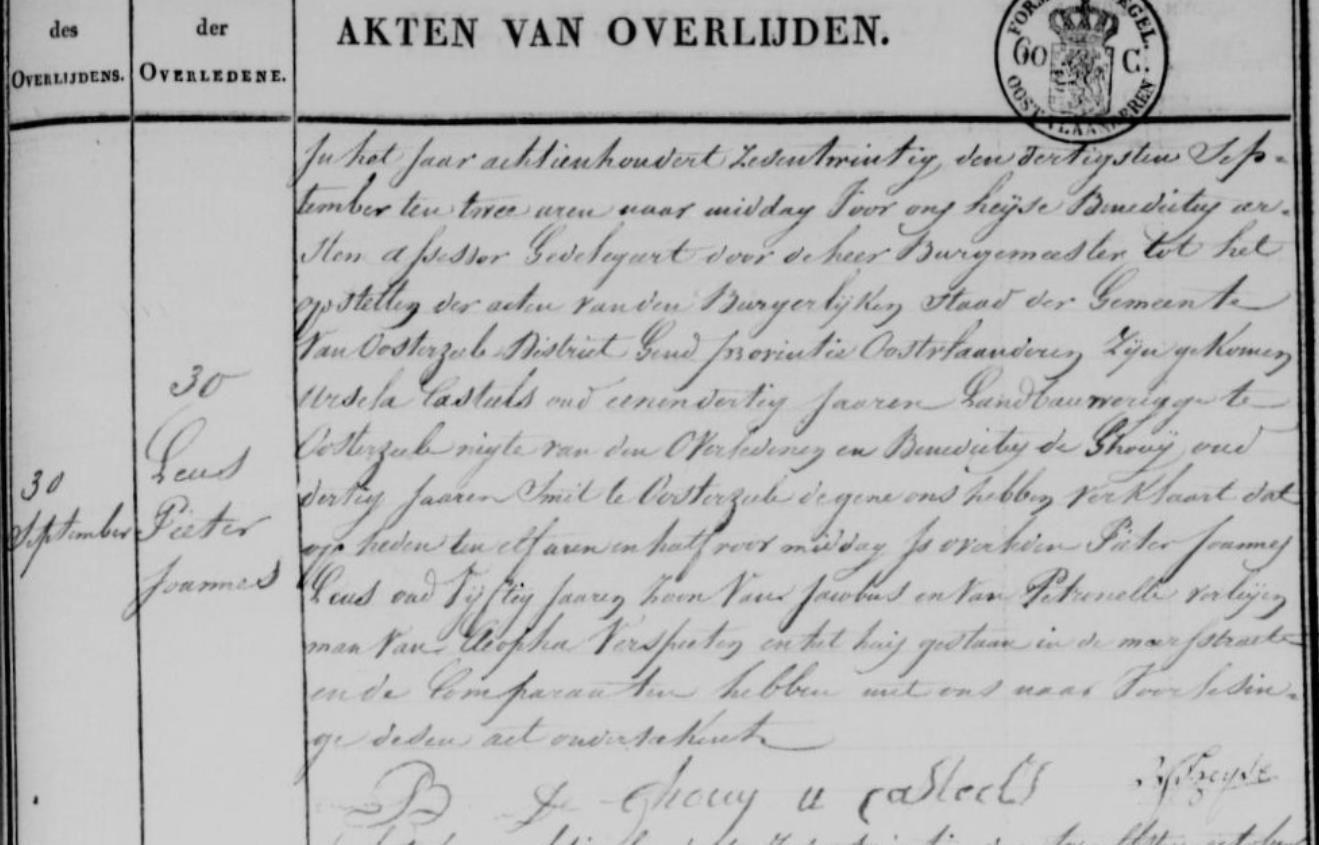 des
OVERLIJDENS.
der
OVERLEDENE.
AKTEN VAN OVERLIJDEN.
60 C.
OOST VLAANDEREN
30
September
30
Leus
Pieter
Joannes
In het Jaar achtienhondert Zeventwintig, den dertigsten Sep-
tember ten twee uren naar middag Voor ons heÿse Benedictus eer-
sten assessor Gedelegeert door de heer Burgemeester tot het
opstellen der acten van den Burgerlijken Staad der Gemeente
Van Oosterzeele District Gend provintie Oostvlaanderen Zijn gekomen
Ursela Casteels oud eenendertig Jaaren Landbauwerigge te
Oosterzeele nigte van den Overledenen en Benedictus de Ghouÿ oud
dertig Jaaren Smit te Oosterzeele degene ons hebben verklaart dat
op heden ten elf uren en half voor middag Is overleden Pieter Joannes
Leus oud Vijftig Jaaren Zoon Van Jacobus en Van Petronelle
man Van Cleopha Verspeeten in het huis gestaan in de meersstraete
en de Comparanten hebben met ons naar Voorlesin-
ge desen act onderteekent
B De Ghouy u Casteels